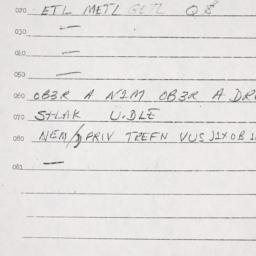 020 ETL METL GETL Q8
030 —
040 —
050 —
060 OB3R A N1M OB3R A DR
070 S+LAK U.DLE
080 NEM/ PRIV TREFN VUS J1X OB
081 —